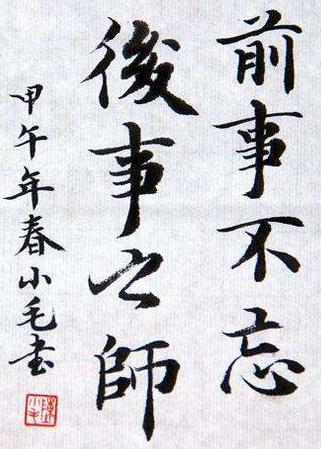 前事不忘
後事之師
甲午年春小毛书